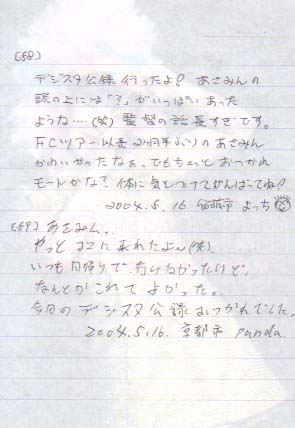 (58)
デジスタ公録 行ったよ! あさみんの
頭の上には「?」がいっぱい あった
ような…(笑) 監督の話長すぎです。
FCツアー以来 2ヶ月半ぶりの あさみん
かわいかったなぁ。でもちょっとおつかれ
モードかな? 体に気をつけてがんばってね!
2004.5.16 よっち
(59) あさみん。
やっとココに来れたよ〜(笑)。
いつも日帰りで、行けなかったけど、
なんとかこれて よかった。
今日のデジスタ公録 おつかれでした。
2004.5.16. 京都市 panda.